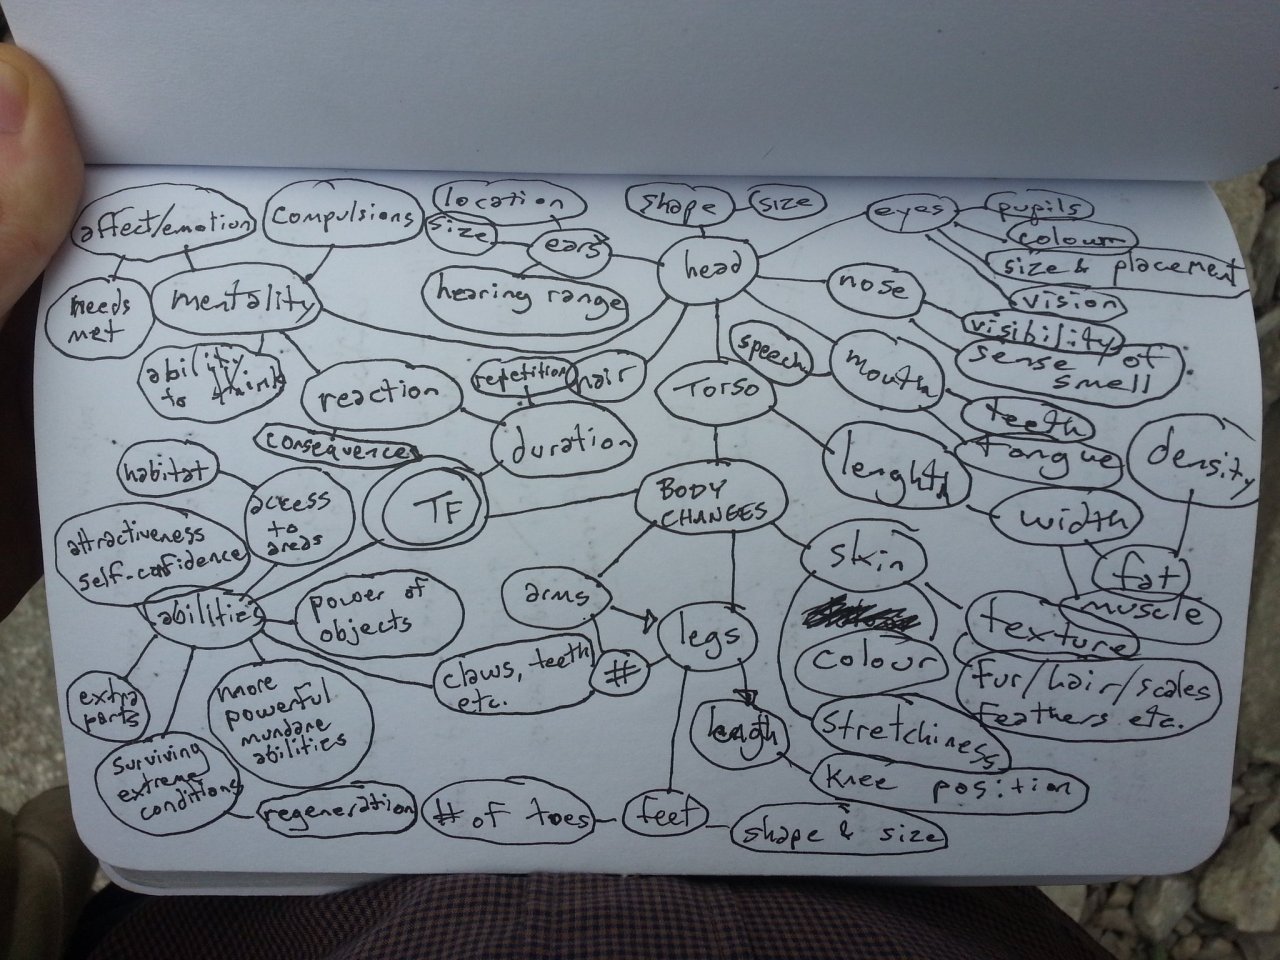 affect/emotion
compulsions
location
size
ears
hearing range
shape
size
head
eyes
pupils
colour
size & placement
vision
nose
visibility
sense of
smell
needs
met
mentality
ability
to think
reaction
consequences
repetition
hair
duration
speech
mouth
teeth
tongue
Torso
lenght
width
density
fat
muscle
habitat
access
to
areas
TF
BODY
CHANGES
attractiveness
self-confidence
abilities
power of
objects
claws, teeth
etc.
extra
parts
more
powerful
mundane
abilities
surviving
extreme
conditions
regeneration
arms
#
legs
length
knee position
feet
# of toes
shape & size
skin
colour
texture
fur/hair/scales
feathers etc.
stretchiness